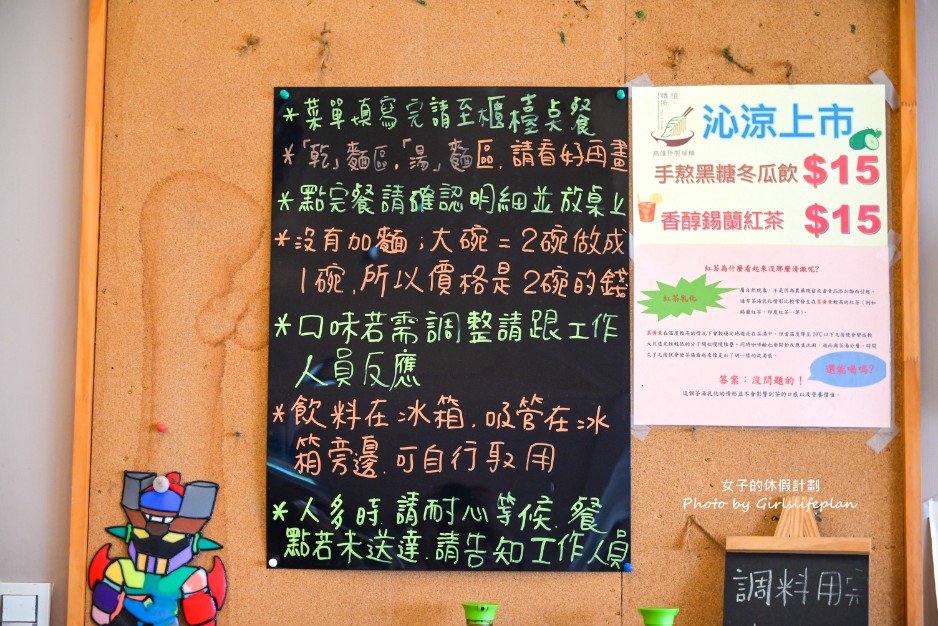 *菜單填寫完請至櫃檯桌餐
*「乾」麵區,「湯」麵區,請看好再畫
*點完餐請確認明細並放桌上
*沒有加麵;大碗=2碗做成
1碗,所以價格是2碗的錢
*口味若需調整請跟工作
人員反應
*飲料在冰箱,吸管在冰
箱旁邊,可自行取用
*人多時,請耐心等候,餐
點若未送達,請告知工作人員
沁涼上市
手熬黑糖冬瓜飲 $15
香醇錫蘭紅茶 $15
紅茶為什麼看起來沒那麼清澈呢?
紅茶乳化
還能喝嗎?
答案:沒問題的!
這個茶湯乳化的情形並不會影響到茶的口感以及營養價值。
女子的休假計劃
Photo by Girlslifeplan
調料用完